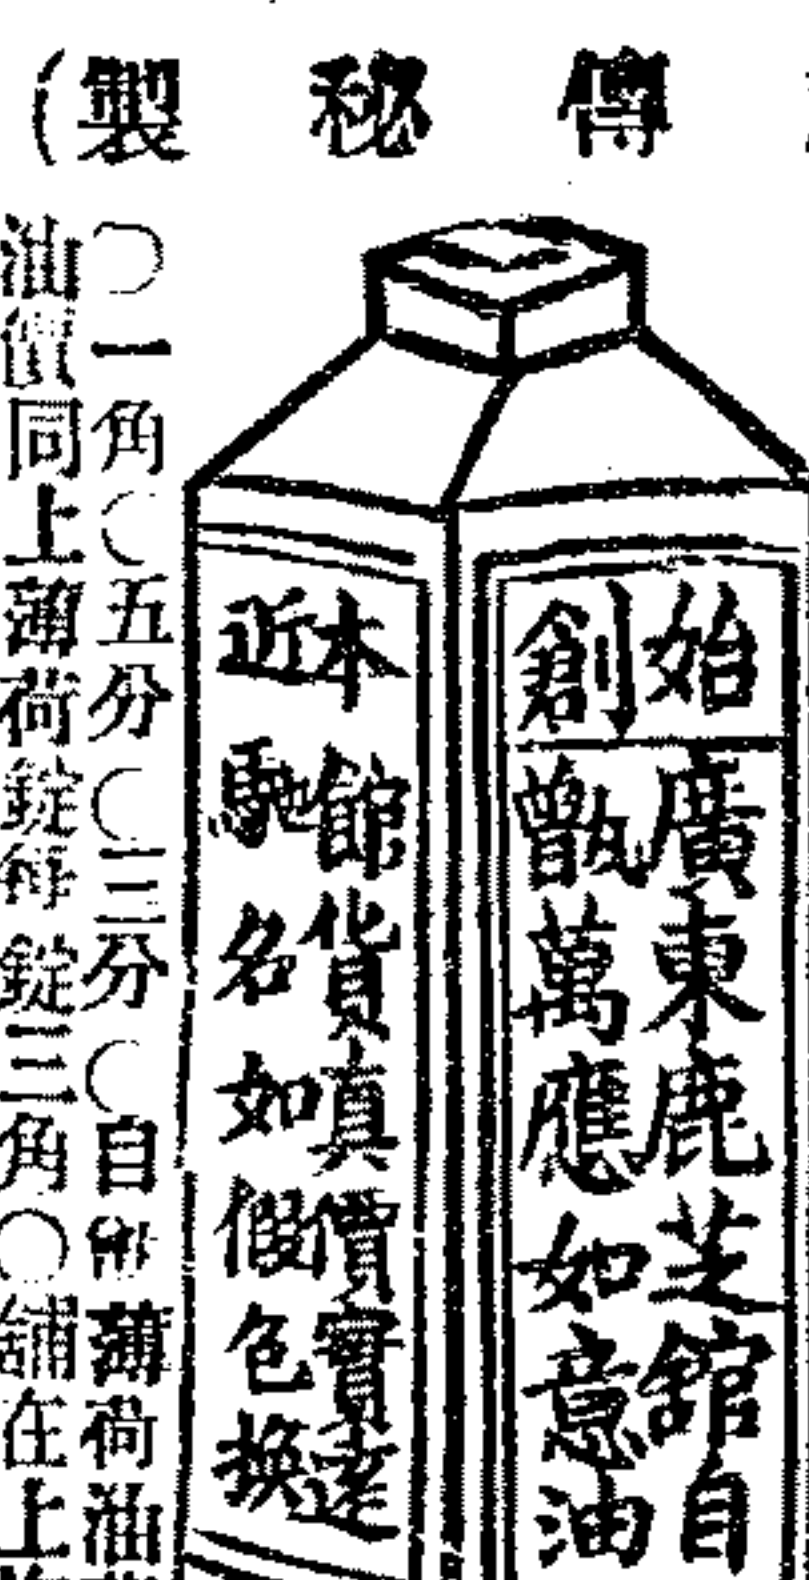 傳秘製(
始創
廣東鹿芝舘自
甑萬應如意油
本館貨真價實遠
近馳名如假包換
○一角○五分○三分○自薄荷油
油價同上薄荷錠每錠三角○舖在上